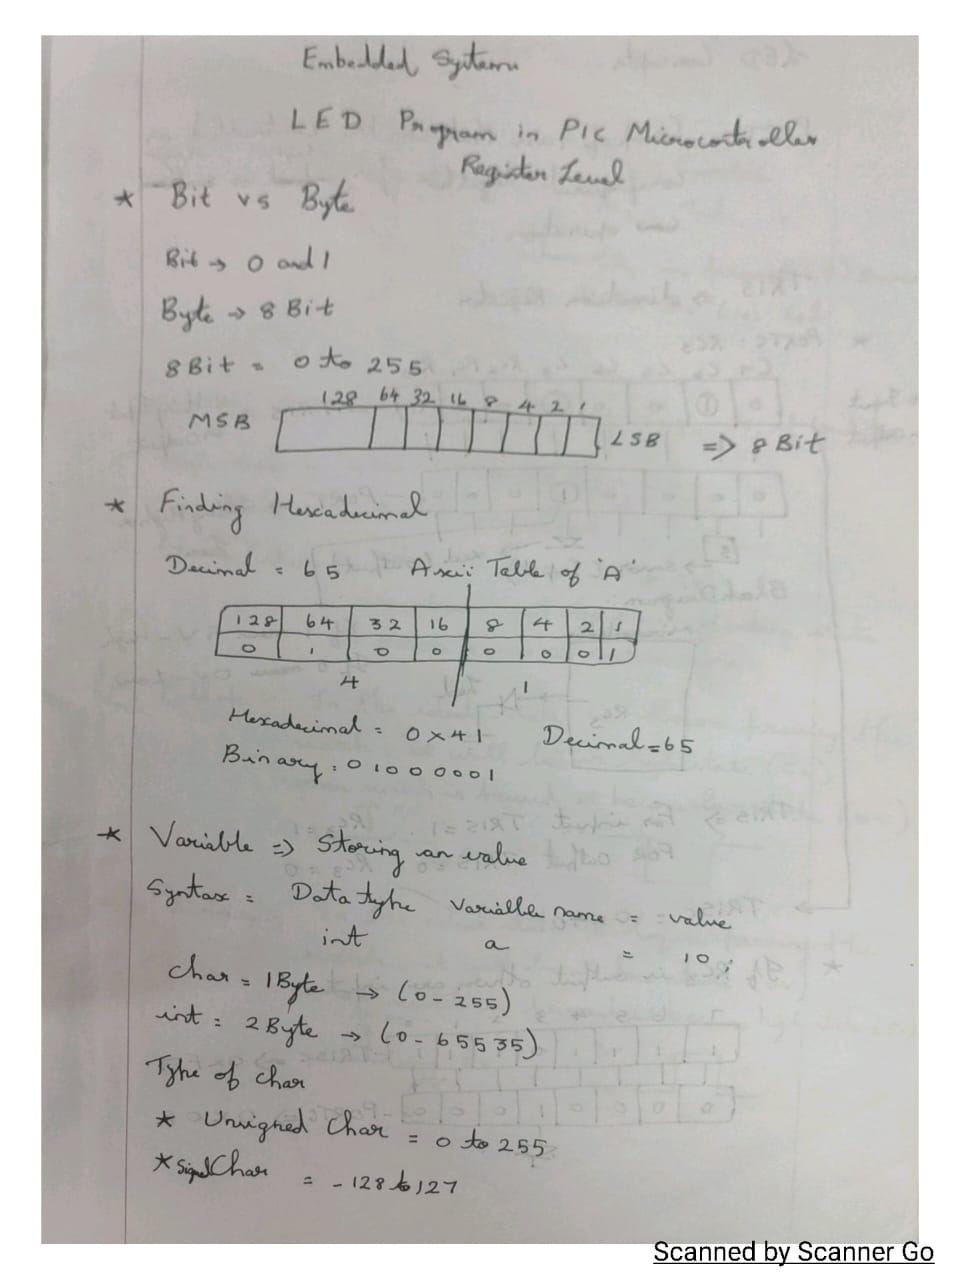 Embedded System
LED Program in PIC Microcontroller
Register Level
* Bit vs Byte
Bit → 0 and 1
Byte → 8 Bit
8 Bit = 0 to 255
128 64 32 16 8 4 2 1
MSB LSB => 8 Bit
* Finding Hexadecimal
Decimal = 65 Ascii Table of 'A'
128 64 32 16 8 4 2 1
0 1 0 0 0 0 0 1
4 1
Hexadecimal = 0x41 Decimal = 65
Binary : 01000001
* Variable => Storing an value
Syntax = Data type Variable name = value
int a = 10;
char = 1 Byte → (0 - 255)
int = 2 Byte → (0 - 65535)
Type of char
* Unsigned Char = 0 to 255
* Signed Char = -128 to 127
Scanned by Scanner Go